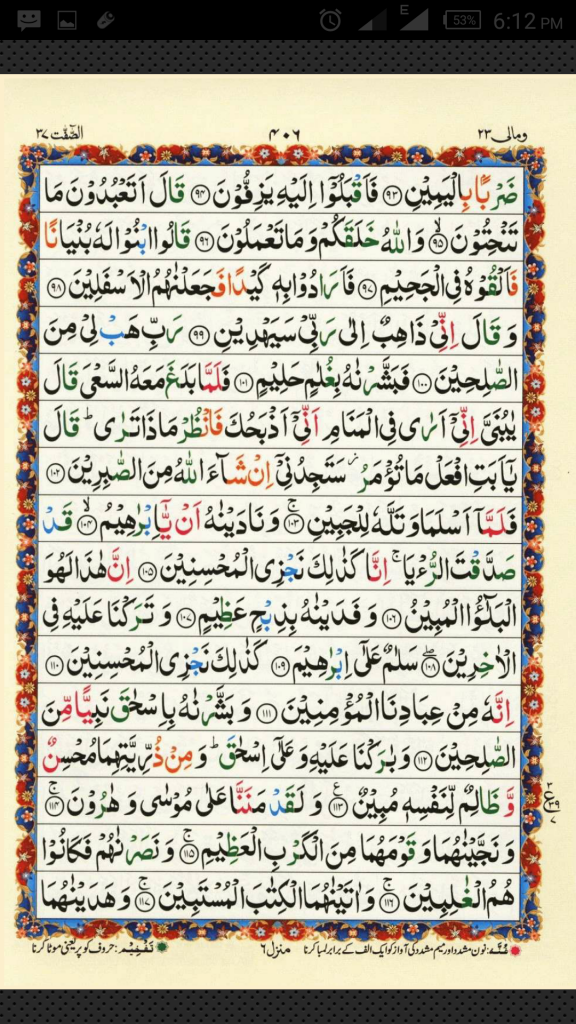 E
53%
6:12 PM
ومالی ٢٣
٤٠٦
الصّٰٓفّٰت ٣٧
ضَرْبًۢا بِالْيَمِيْنِ ﴿٩٣﴾ فَاَقْبَلُوْۤا اِلَيْهِ يَزِفُّوْنَ ﴿٩٤﴾ قَالَ اَتَعْبُدُوْنَ مَا
تَنْحِتُوْنَ ۙ﴿٩٥﴾ وَاللّٰهُ خَلَقَكُمْ وَمَا تَعْمَلُوْنَ ﴿٩٦﴾ قَالُوا ابْنُوْا لَهٗ بُنْيَانًا
فَاَلْقُوْهُ فِى الْجَحِيْمِ ﴿٩٧﴾ فَاَرَادُوْا بِهٖ كَيْدًا فَجَعَلْنٰهُمُ الْاَسْفَلِيْنَ ﴿٩٨﴾
وَ قَالَ اِنِّىْ ذَاهِبٌ اِلٰى رَبِّىْ سَيَهْدِيْنِ ﴿٩٩﴾ رَبِّ هَبْ لِىْ مِنَ
الصّٰلِحِيْنَ ﴿١٠٠﴾ فَبَشَّرْنٰهُ بِغُلٰمٍ حَلِيْمٍ ﴿١٠١﴾ فَلَمَّا بَلَغَ مَعَهُ السَّعْىَ قَالَ
يٰبُنَىَّ اِنِّىْۤ اَرٰى فِى الْمَنَامِ اَنِّىْۤ اَذْبَحُكَ فَانْظُرْ مَاذَا تَرٰى ؕ قَالَ
يٰۤاَبَتِ افْعَلْ مَا تُؤْمَرُ ؗ سَتَجِدُنِىْۤ اِنْ شَآءَ اللّٰهُ مِنَ الصّٰبِرِيْنَ ﴿١٠٢﴾
فَلَمَّاۤ اَسْلَمَا وَتَلَّهٗ لِلْجَبِيْنِ ۚ﴿١٠٣﴾ وَنَادَيْنٰهُ اَنْ يّٰۤاِبْرٰهِيْمُ ۙ﴿١٠٤﴾ قَدْ
صَدَّقْتَ الرُّءْيَا ۚ اِنَّا كَذٰلِكَ نَجْزِى الْمُحْسِنِيْنَ ﴿١٠٥﴾ اِنَّ هٰذَا لَهُوَ
الْبَلٰٓؤُا الْمُبِيْنُ ﴿١٠٦﴾ وَ فَدَيْنٰهُ بِذِبْحٍ عَظِيْمٍ ﴿١٠٧﴾ وَ تَرَكْنَا عَلَيْهِ فِى
الْاٰخِرِيْنَ ۖ﴿١٠٨﴾ سَلٰمٌ عَلٰٓى اِبْرٰهِيْمَ ﴿١٠٩﴾ كَذٰلِكَ نَجْزِى الْمُحْسِنِيْنَ ﴿١١٠﴾
اِنَّهٗ مِنْ عِبَادِنَا الْمُؤْمِنِيْنَ ﴿١١١﴾ وَ بَشَّرْنٰهُ بِاِسْحٰقَ نَبِيًّا مِّنَ
الصّٰلِحِيْنَ ﴿١١٢﴾ وَ بٰرَكْنَا عَلَيْهِ وَ عَلٰٓى اِسْحٰقَ ؕ وَ مِنْ ذُرِّيَّتِهِمَا مُحْسِنٌ
وَّ ظَالِمٌ لِّنَفْسِهٖ مُبِيْنٌ ﴿١١٣﴾ وَ لَقَدْ مَنَنَّا عَلٰى مُوْسٰى وَ هٰرُوْنَ ۚ﴿١١٤﴾
وَ نَجَّيْنٰهُمَا وَ قَوْمَهُمَا مِنَ الْكَرْبِ الْعَظِيْمِ ۚ﴿١١٥﴾ وَ نَصَرْنٰهُمْ فَكَانُوْا
هُمُ الْغٰلِبِيْنَ ۚ﴿١١٦﴾ وَ اٰتَيْنٰهُمَا الْكِتٰبَ الْمُسْتَبِيْنَ ۚ﴿١١٧﴾ وَ هَدَيْنٰهُمَا
غُنَّہ: نون مشدد اور میم مشدد کی آواز کو ایک الف کے برابر لمبا کرنا
منزل ٦
تفخیم: حروف کو پُر یعنی موٹا کرنا